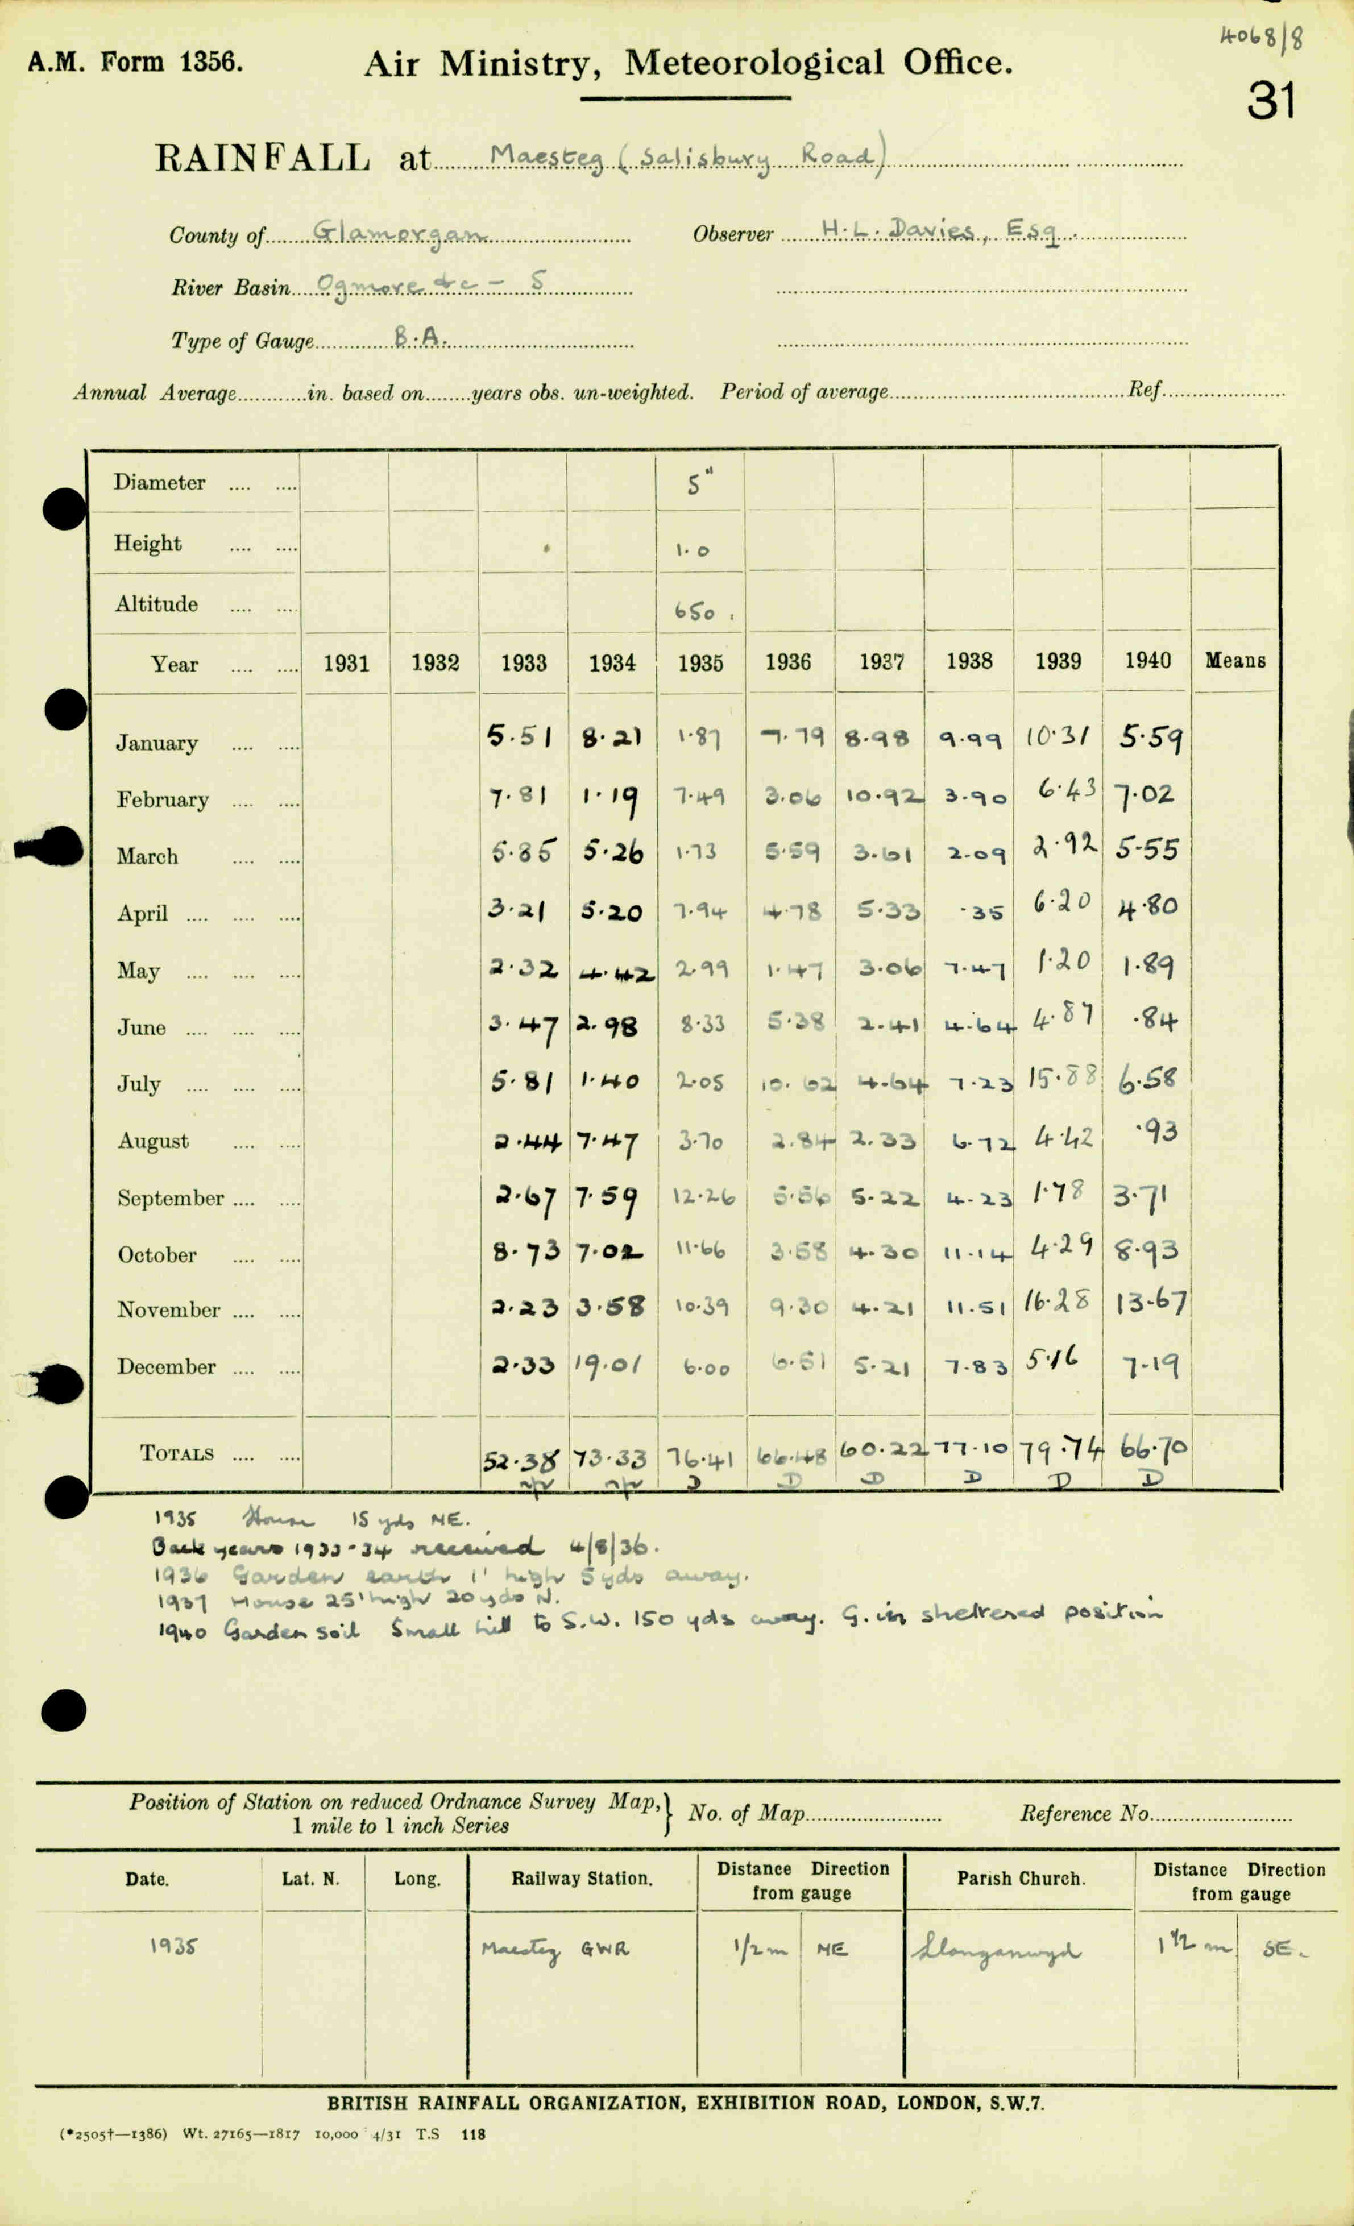 4068/8
A.M. Form 1356. Air Ministry, Meteorological Office.
31
RAINFALL at Maesteg (Salisbury Road)
County of Glamorgan Observer H.L. Davies, Esq.
River Basin Ogmore &c - S
Type of Gauge B.A.
Annual Average in. based on years obs. un-weighted. Period of average Ref.
Diameter 5"
Height 1.0
Altitude 650.
Year 1931 1932 1933 1934 1935 1936 1937 1938 1939 1940 Means
January 5.51 8.21 1.87 7.79 8.98 9.99 10.31 5.59
February 7.81 1.19 7.49 3.06 10.92 3.90 6.43 7.02
March 5.85 5.26 1.73 5.59 3.61 2.09 2.92 5.55
April 3.21 5.20 7.94 4.78 5.33 .35 6.20 4.80
May 2.32 4.42 2.99 1.47 3.06 7.47 1.20 1.89
June 3.47 2.98 8.33 5.38 2.41 4.64 4.87 .84
July 5.81 1.40 2.05 10.62 4.64 7.23 15.88 6.58
August 2.44 7.47 3.70 2.84 2.33 6.72 4.42 .93
September 2.67 7.59 12.26 5.56 5.22 4.23 1.78 3.71
October 8.73 7.02 11.66 3.58 4.30 11.14 4.29 8.93
November 2.23 3.58 10.39 9.30 4.21 11.51 16.28 13.67
December 2.33 19.01 6.00 6.51 5.21 7.83 5.16 7.19
TOTALS 52.38 73.33 76.41 66.48 60.22 77.10 79.74 66.70
D D D D D D
1935 House 15 yds NE.
Back years 1933-34 received 4/8/36.
1936 Garden earth 1' high 5 yds away.
1937 House 25' high 20 yds N.
1940 Garden soil Small hill to S.W. 150 yds away. G. in sheltered position
Position of Station on reduced Ordnance Survey Map, } No. of Map Reference No.
1 mile to 1 inch Series
Date. Lat. N. Long. Railway Station. Distance Direction from gauge Parish Church. Distance Direction from gauge
1935 Maesteg GWR 1/2 m NE Llangynwyd 1 1/2 m SE.
BRITISH RAINFALL ORGANIZATION, EXHIBITION ROAD, LONDON, S.W.7.
(*2505†—1386) Wt. 27165—1817 10,000 4/31 T.S 118